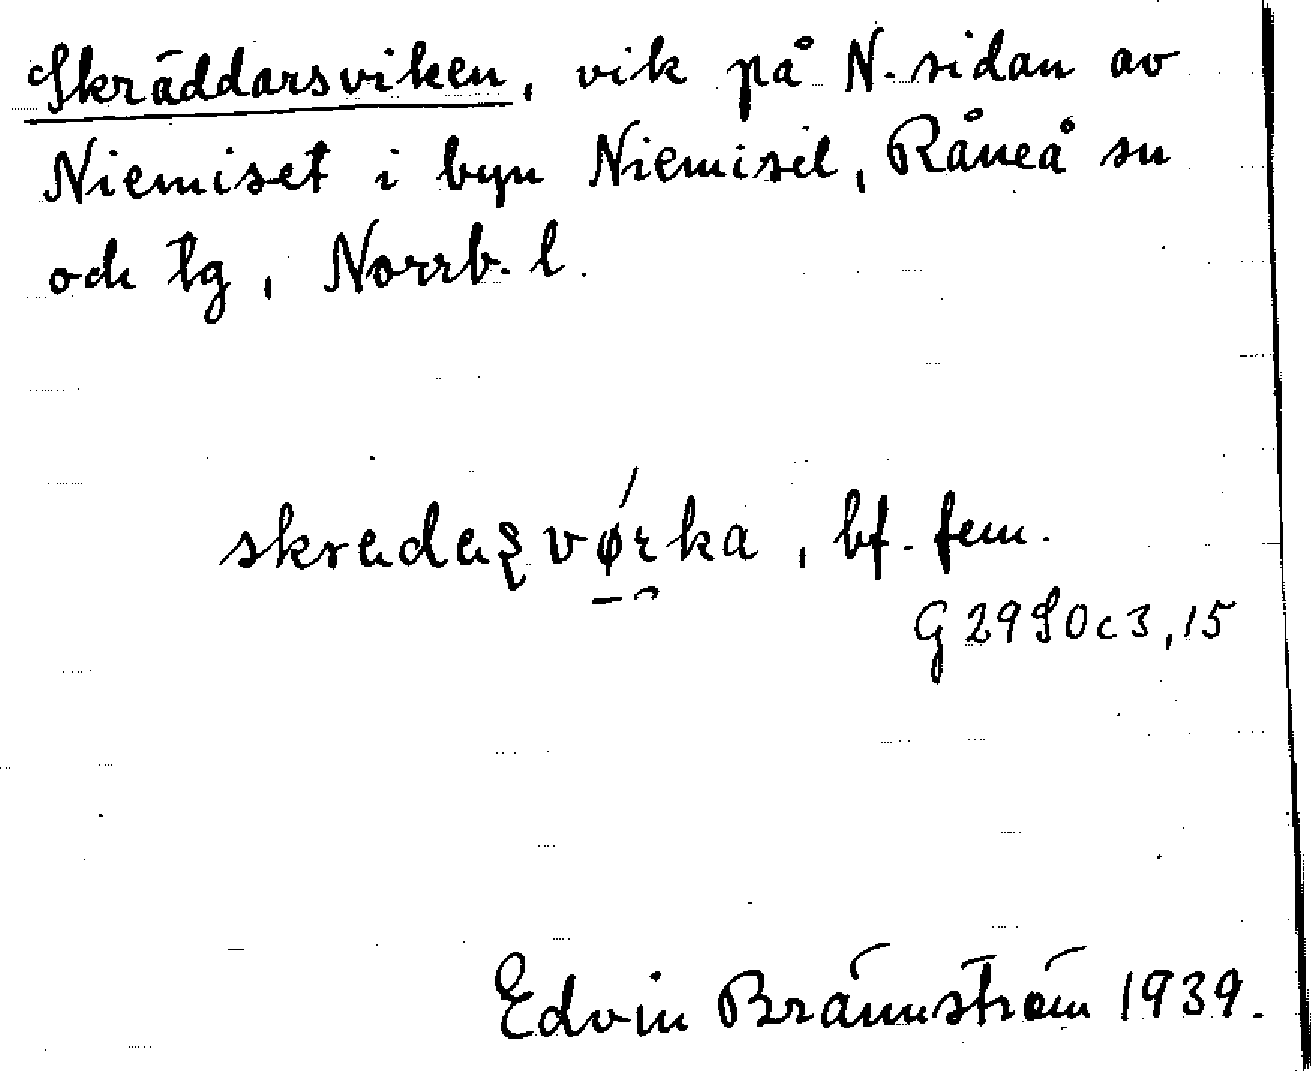 Skräddarsviken, vik på N. sidan av
Niemiset i byn Niemisel, Råneå sn
och tg, Norrb. l.
bf. fem.
G 2990c3,15
Edvin Brännström 1939.